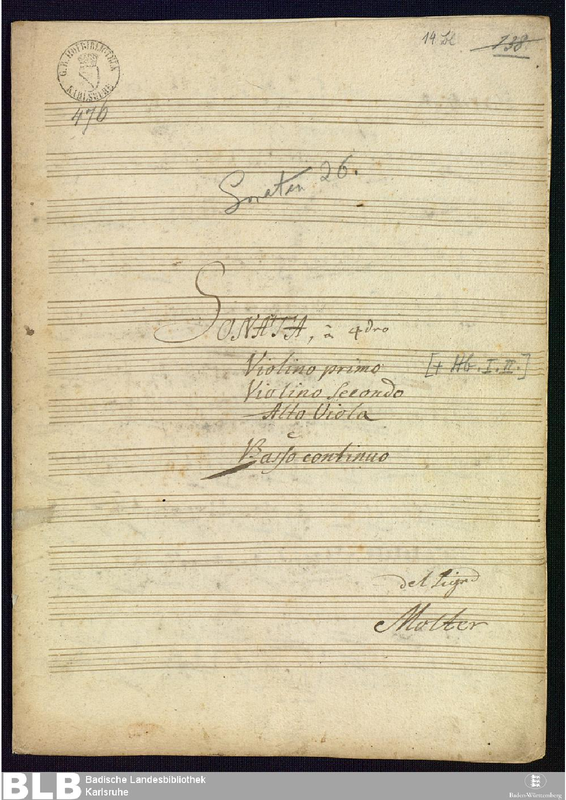 14 Bl. 738.
G.H. HOFBIBLIOTHEK
KARLSRUHE
476
Sonaten 26.
SONATA, à 4dro
Violino primo [+ Hb. I. II.]
Violino Secondo
Alto Viola
e
Basso continuo
del Sigr
Molter
BLB Badische Landesbibliothek
Karlsruhe
Baden-Württemberg